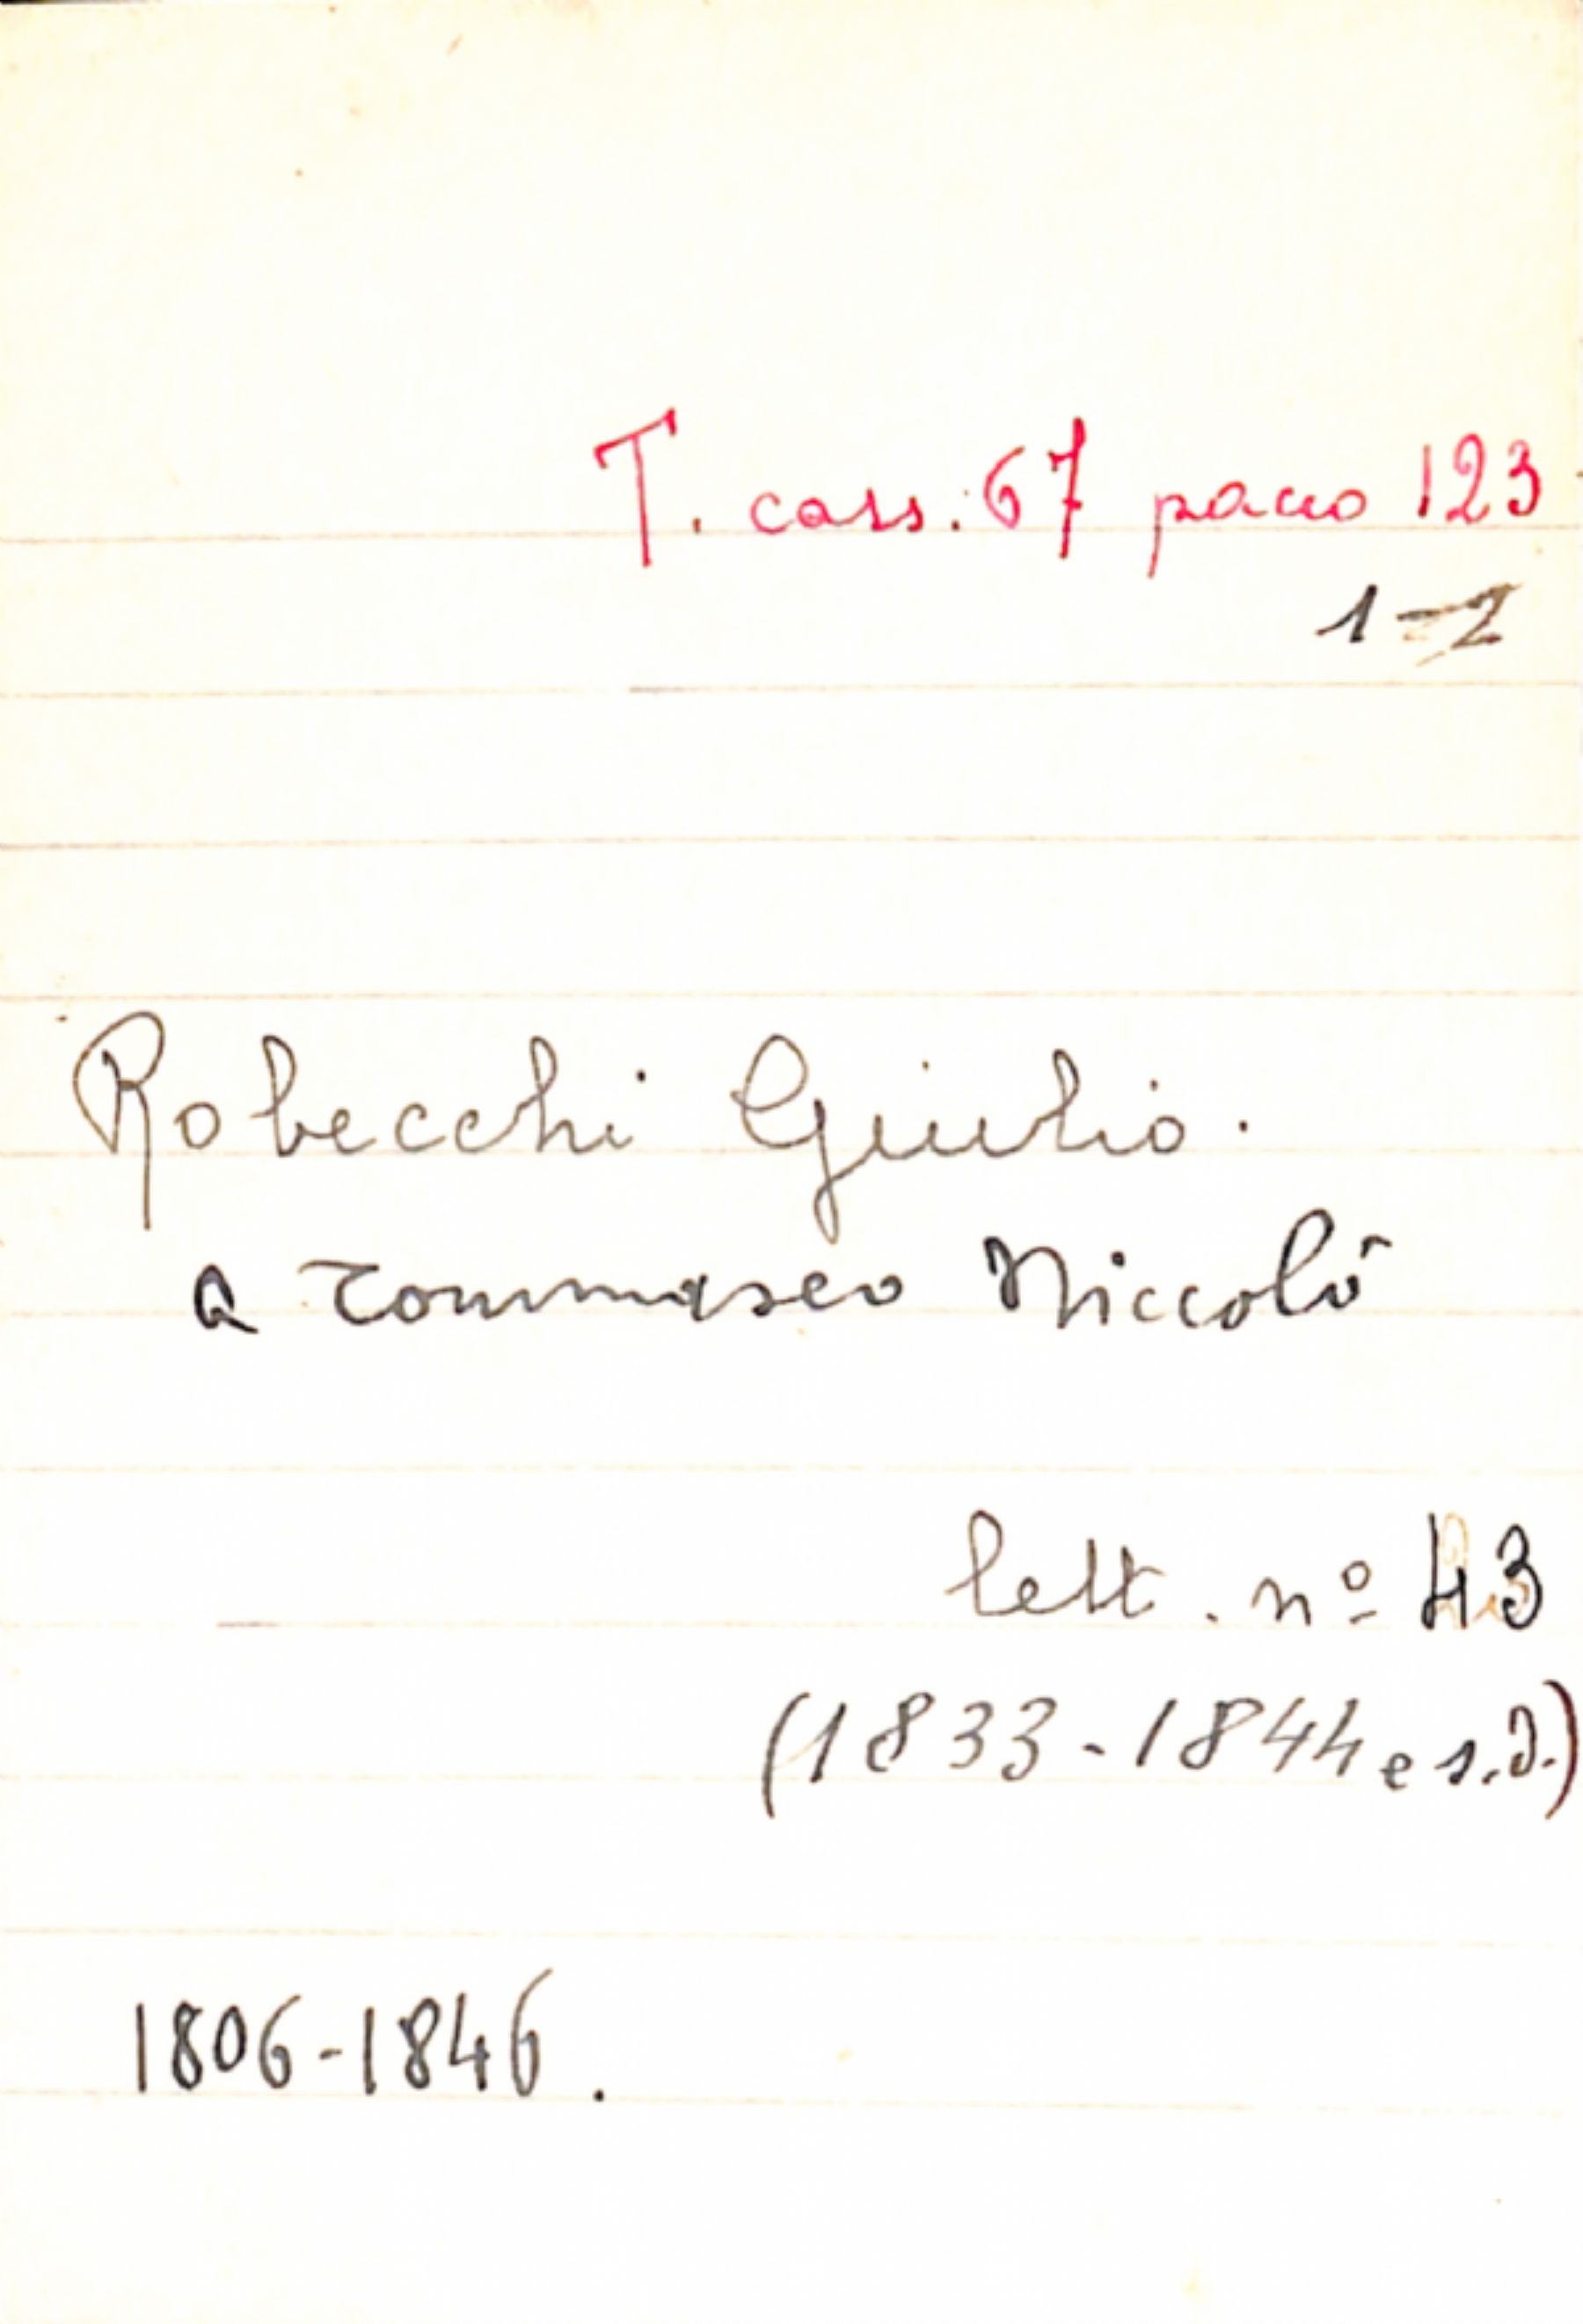 T. cass: 67 pacco 123
1-2
Robecchi Giulio.
a Tommaseo Niccolò
lett. nº 43
(1833-1844 e s.d.)
1806-1846.